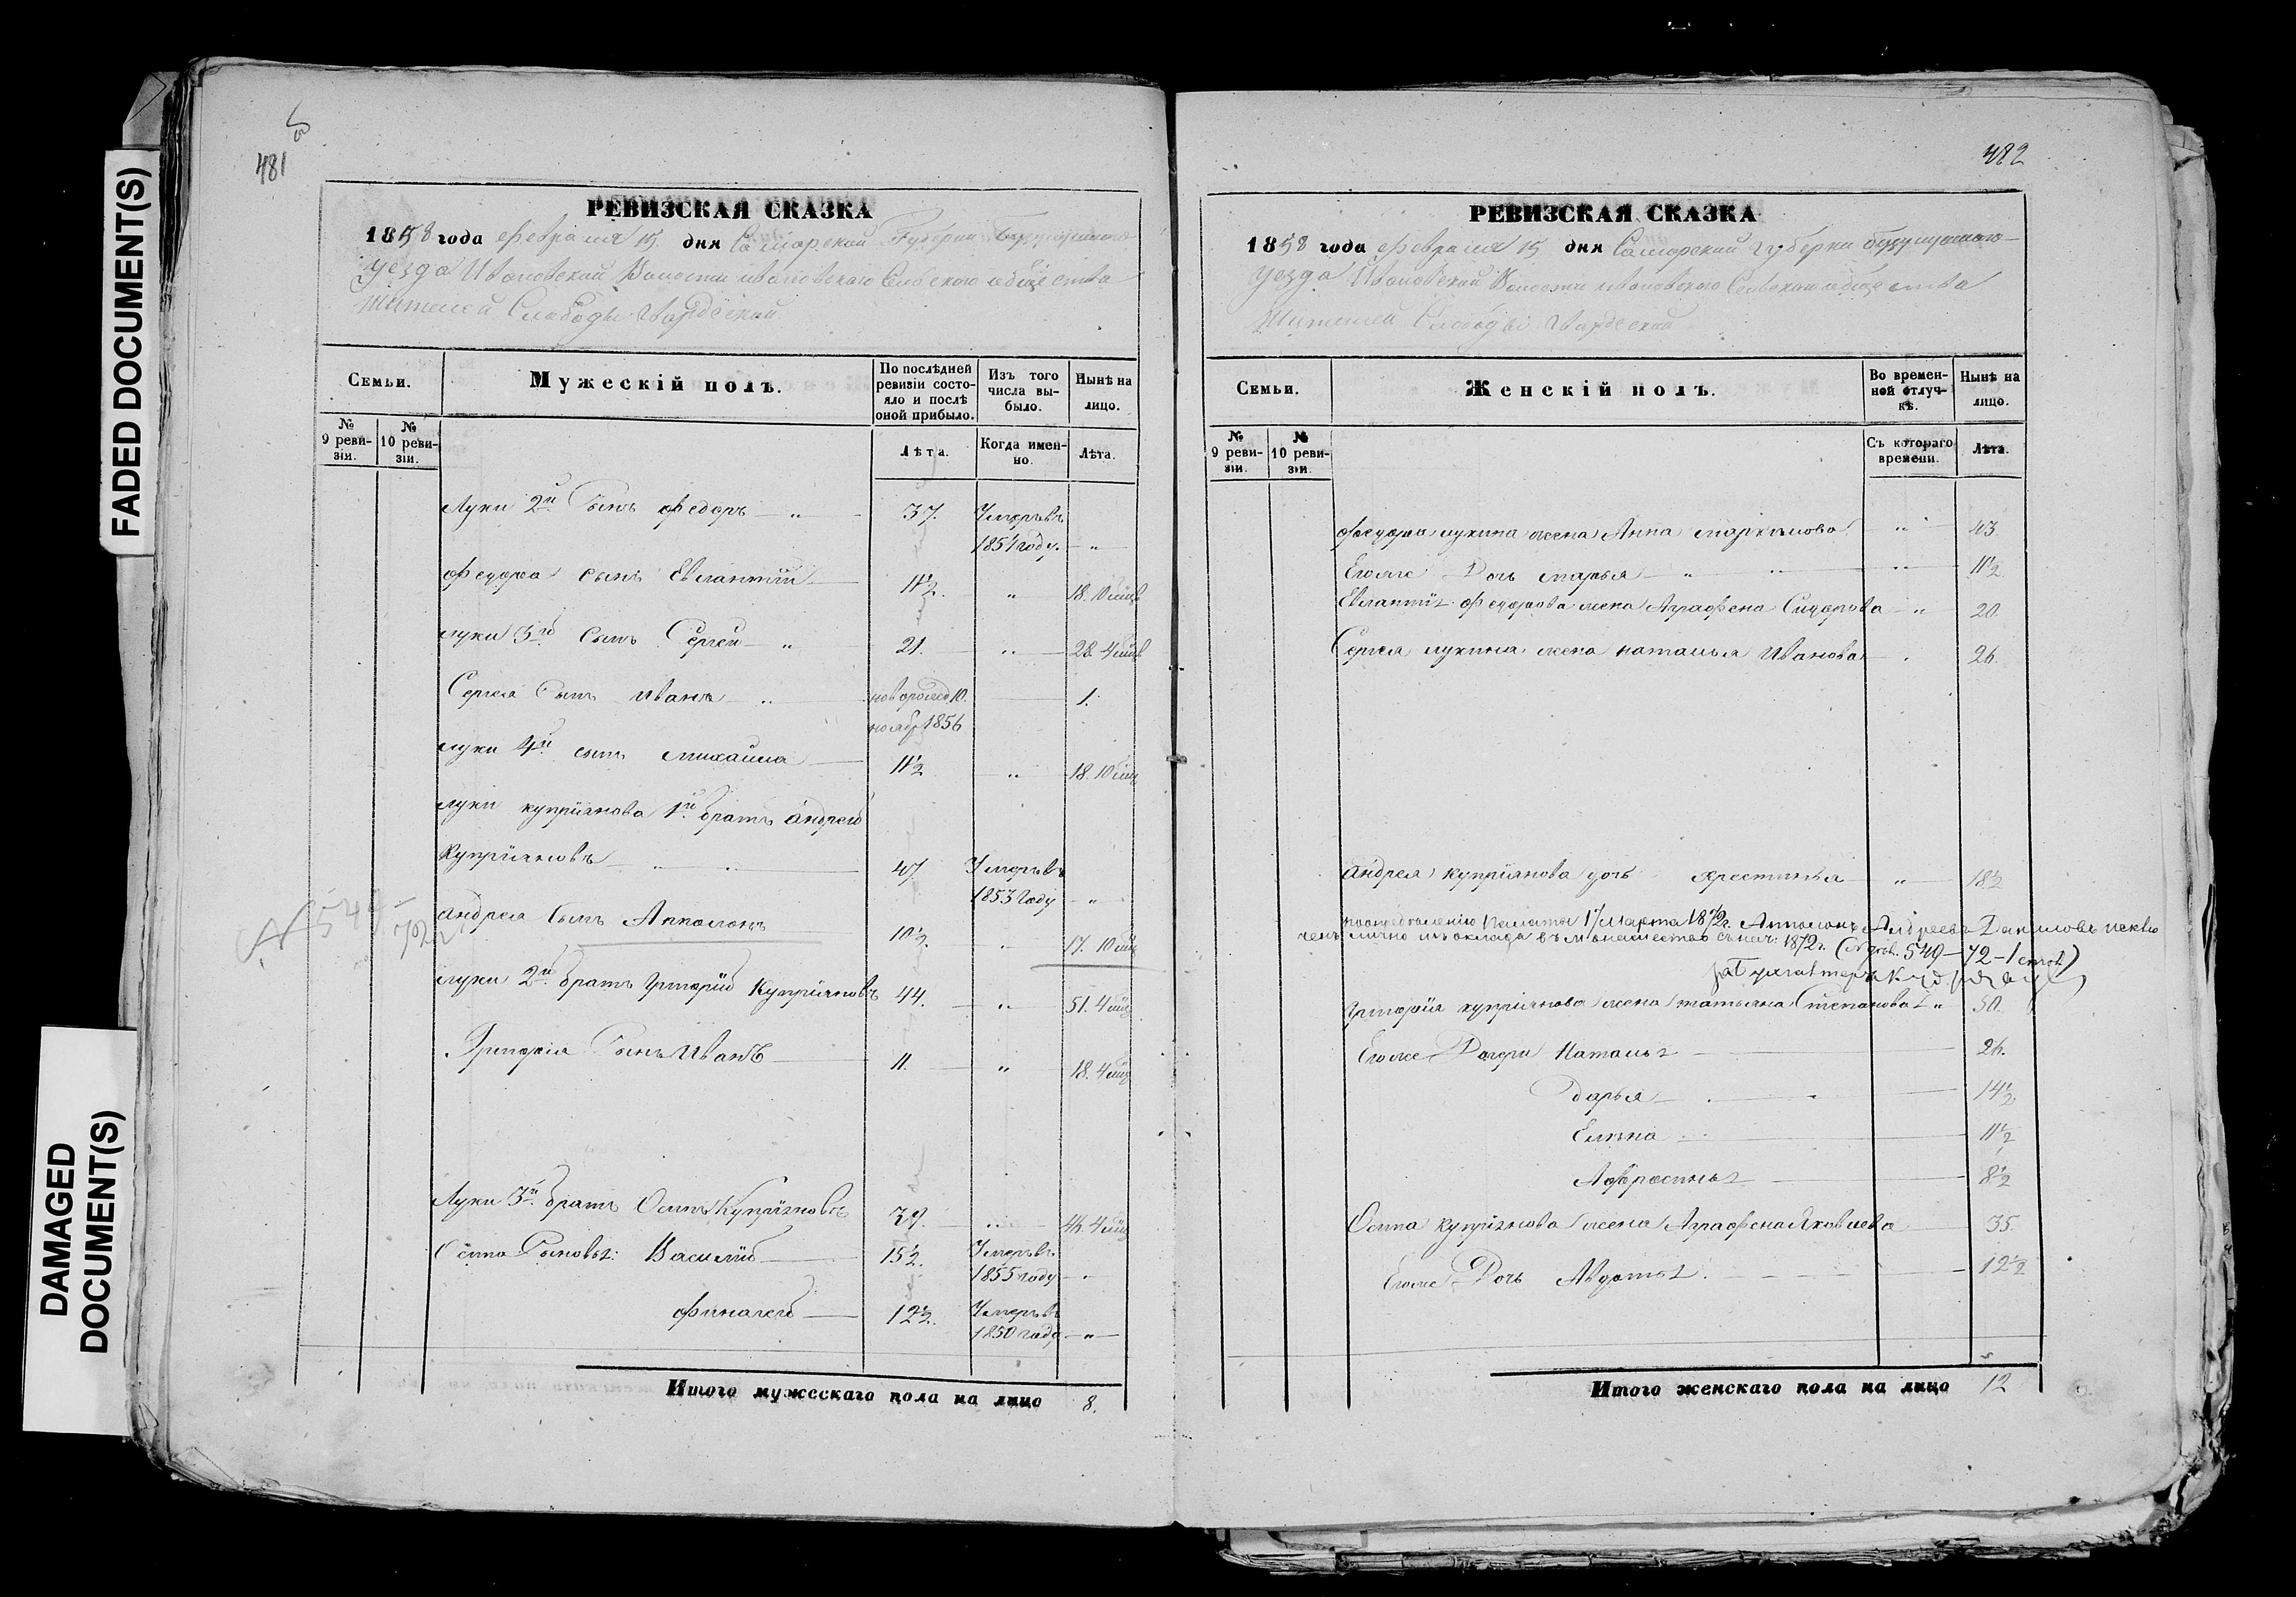 FADED DOCUMENT(S)
DAMAGED
DOCUMENT(S)
481
РЕВИЗСКАЯ СКАЗКА
1858 года февраля 15 дня Самарской Губернии Бузулукского
уезда Ивановской Волости Ивановского Сельского общества
жителей Слободы Гвардейской
Семьи.
Мужескій полъ.
По послѣдней ревизіи состояло и послѣ оной прибыло.
Изъ того числа выбыло.
Нынѣ на лицо.
№ 9 ревизіи.
№ 10 ревизіи.
Лѣта.
Когда именно.
Лѣта.
Луки 2й Сынъ Федоръ — „ — 37. Умеръ въ
1854 году. — „ —
Федора сынъ Евлантий — 11½. „ 18. 10 мѣц
Луки 3й Сынъ Сергей — „ 21. „ 28. 4 мѣц
Сергея Сынъ Иванъ — „ новорожд 10. 1.
ноябр 1856
Луки 4й сынъ Михайла — 11½ „ 18. 10 мѣц
Луки Куприянова 1й братъ Андрей
Куприяновъ — 47. Умеръ въ
1853 году — „
Андрея Сынъ Апполонъ 10½. „ 17. 10 мѣц
Луки 2й братъ Григорий Куприяновъ 44. „ 51. 4 мѣц
Григория Сынъ Иванъ — 11. „ 18. 4 мѣц
Луки 3й братъ Осипъ Куприяновъ 39. „ 46. 4 мѣц
Осипа Сыновья: Василий — 15½. Умеръ въ
1855 году — „
12½. Умеръ въ
1850 году — „ —
Итого мужескаго пола на лицо 8.
482
РЕВИЗСКАЯ СКАЗКА
1858 года февраля 15 дня Самарской Губернии Бузулукского
уезда Ивановской Волости Ивановского Сельского общества
жителей Слободы Гвардейской
Семьи.
Женскій полъ.
Во временной отлучкѣ.
Нынѣ на лицо.
№ 9 ревизіи.
№ 10 ревизіи.
Съ котораго времени.
Лѣта.
Федора Лукина жена Анна „ 43.
Егоже Дочь Марья — „ „ 11½
Евлантия Федорова жена Аграфена Сидорова — „ 20.
Сергея Лукина жена Наталья Иванова — 26.
Андрея Куприянова дочь Хрестинья — „ 18½
Палаты 17 марта 1872 г. Апполонъ Андреевъ Даниловъ исклю
ченъ лично изъ оклада 1872 г. 549—72—1
Григория Куприянова жена Татьяна Степанова „ 50.
Егоже Дочери Наталья — 26.
Дарья — 14½
Елѣна — 11½
Афросинья — 8½
Осипа Куприянова жена Аграфена Яковлева — 35.
Егоже Дочь Авдотья — 12½
Итого женскаго пола на лицо 12